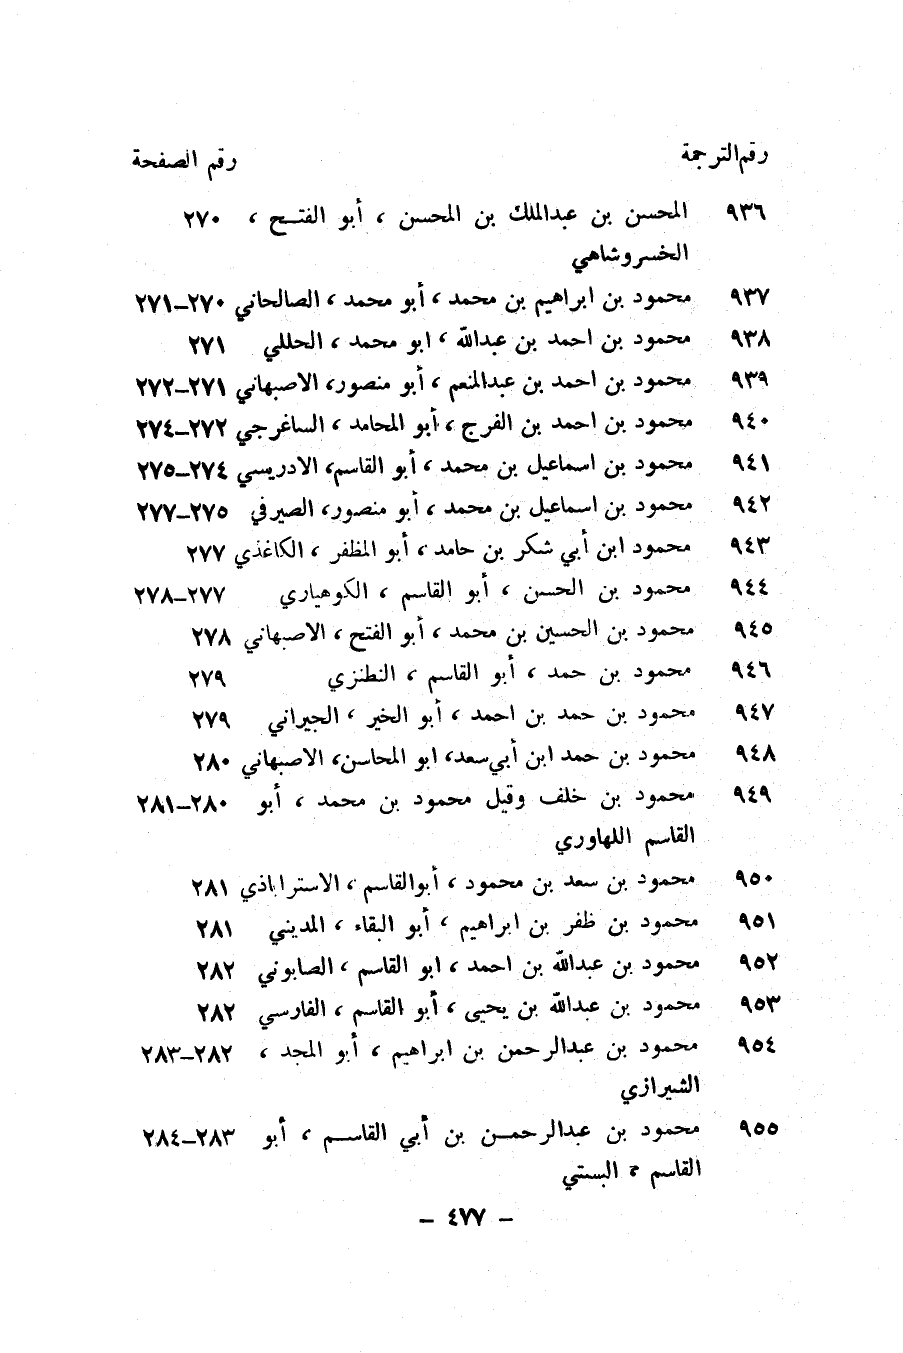 رقم الترجمة رقم الصفحة
٩٣٦ المحسن بن عبدالملك بن المحسن ، أبو الفتـــح ، ٢٧٠
الخسروشاهي
٩٣٧ محمود بن ابراهيم بن محمد ، أبو محمد ، الصالحاني ٢٧٠–٢٧١
٩٣٨ محمود بن احمد بن عبدالله ، ابو محمد ، الحللي ٢٧١
٩٣٩ محمود بن احمد بن عبدالمنعم ، أبو منصور، الاصبهاني ٢٧١–٢٧٢
٩٤٠ محمود بن احمد بن الفرج ، أبو المحامد ، الساغرجي ٢٧٢–٢٧٤
٩٤١ محمود بن اسماعيل بن محمد ، أبو القاسم، الادريسي ٢٧٤–٢٧٥
٩٤٢ محمود بن اسماعيل بن محمد ، أبو منصور، الصيرفي ٢٧٥–٢٧٧
٩٤٣ محمود ابن أبي شكر بن حامد ، أبو المظفر ، الكاغذي ٢٧٧
٩٤٤ محمود بن الحسن ، أبو القاسم ، الكوهياري ٢٧٧–٢٧٨
٩٤٥ محمود بن الحسين بن محمد ، أبو الفتح ، الاصبهاني ٢٧٨
٩٤٦ محمود بن حمد ، أبو القاسم ، النطنزي ٢٧٩
٩٤٧ محمود بن حمد بن احمد ، أبو الخير ، الجيراني ٢٧٩
٩٤٨ محمود بن حمد ابن أبي سعد، ابو المحاسن، الاصبهاني ٢٨٠
٩٤٩ محمود بن خلف وقيل محمود بن محمد ، أبو ٢٨٠–٢٨١
القاسم اللهاوري
٩٥٠ محمود بن سعد بن محمود ، أبوالقاسم ، الاستراباذي ٢٨١
٩٥١ محمود بن ظفر بن ابراهيم ، أبو البقاء ، المديني ٢٨١
٩٥٢ محمود بن عبدالله بن احمد ، ابو القاسم ، الصابوني ٢٨٢
٩٥٣ محمود بن عبدالله بن يحيى ، أبو القاسم ، الفارسي ٢٨٢
٩٥٤ محمود بن عبدالرحمن بن ابراهيم ، أبو المجد ، ٢٨٢–٢٨٣
الشيرازي
٩٥٥ محمود بن عبدالرحمــن بن أبي القاســـم ، أبو ٢٨٣–٢٨٤
القاسم ، البستي
– ٤٧٧ –